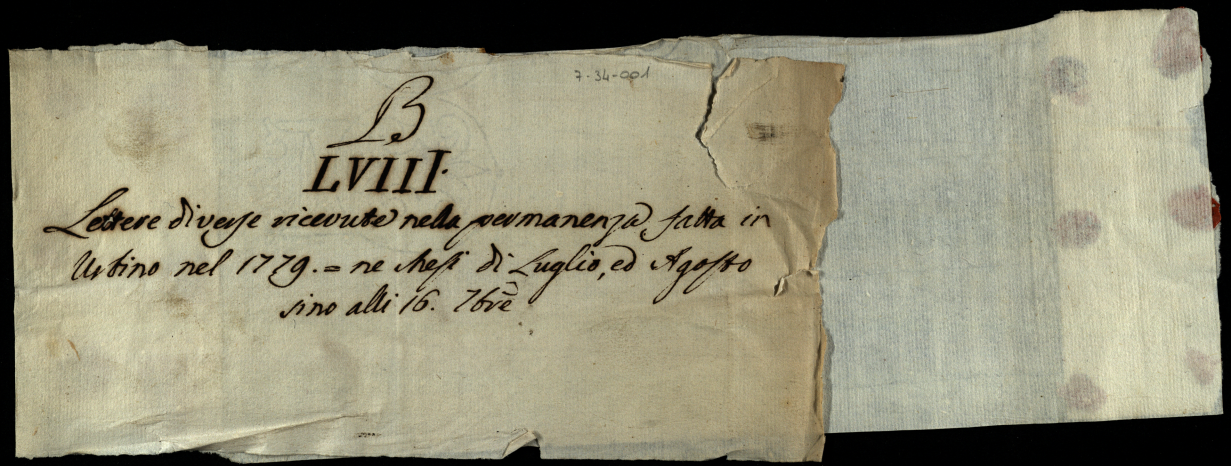 7-34-001
B
LVIII.
Lettere diverse ricevute nella permanenza fatta in
Urbino nel 1779. = ne Mesi di Luglio, ed Agosto
sino alli 16. 7bre